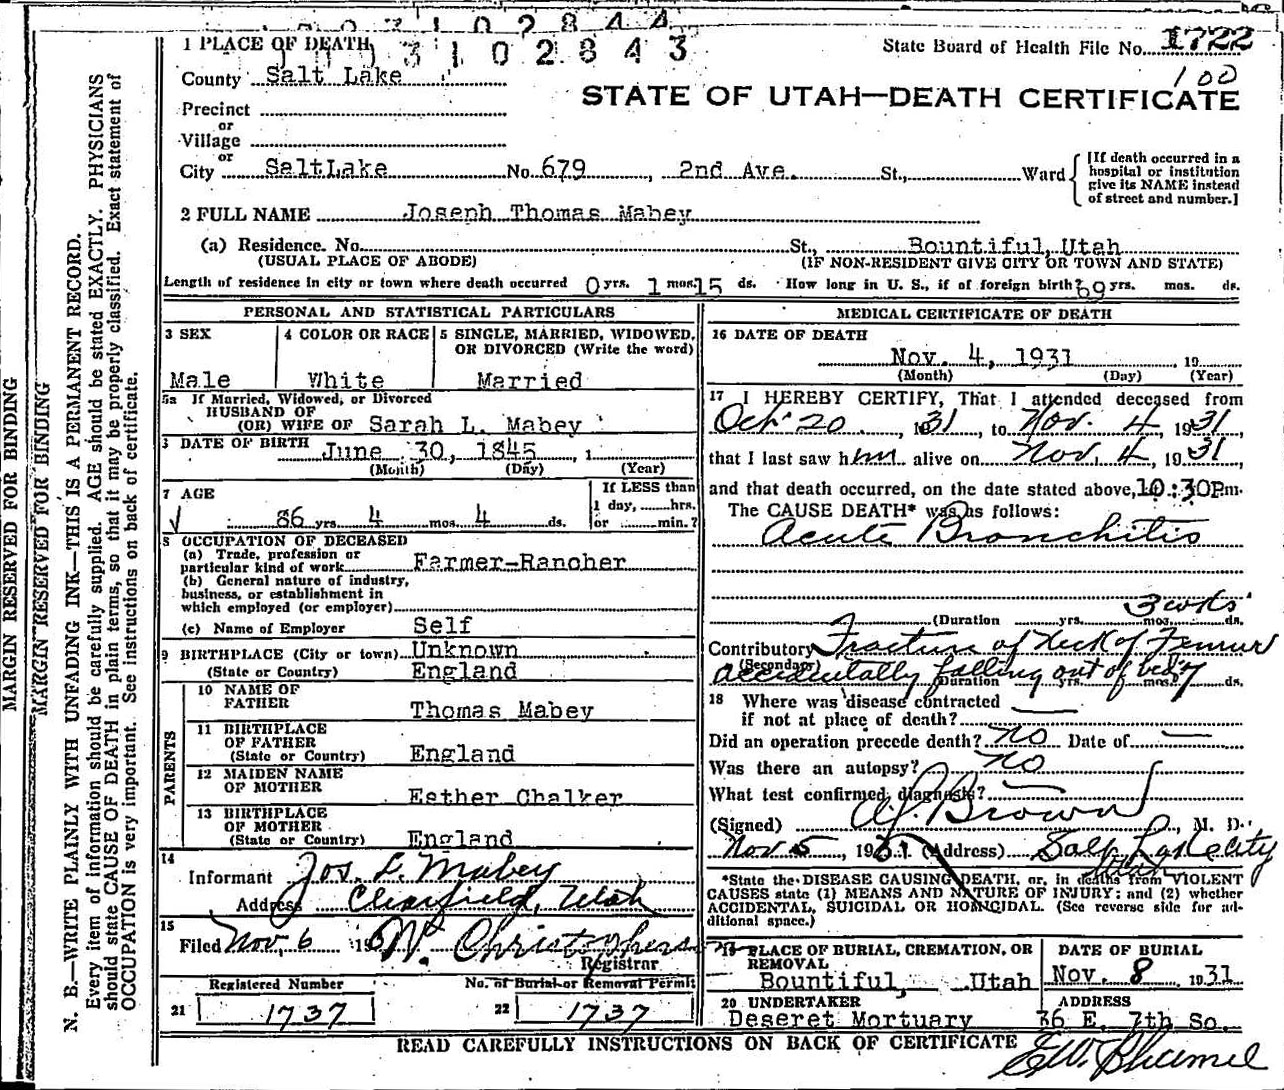 0031028 4 4
1 PLACE OF DEATH
3 1 0 2 8 4 3
State Board of Health File No. 1722
County Salt Lake
100
STATE OF UTAH—DEATH CERTIFICATE
Precinct
or
Village
or
City SaltLake No. 679, 2nd Ave. St., Ward
[If death occurred in a
hospital or institution
give its NAME instead
of street and number.]
2 FULL NAME Joseph Thomas Mabey
(a) Residence. No. St., Bountiful, Utah
(USUAL PLACE OF ABODE) (IF NON-RESIDENT GIVE CITY OR TOWN AND STATE)
Length of residence in city or town where death occurred 0 yrs. 1 mos. 15 ds. How long in U. S., if of foreign birth? 69 yrs. mos. ds.
PERSONAL AND STATISTICAL PARTICULARS
3 SEX
Male
4 COLOR OR RACE
White
5 SINGLE, MARRIED, WIDOWED,
OR DIVORCED (Write the word)
Married
5a If Married, Widowed, or Divorced
HUSBAND OF
(OR) WIFE OF Sarah L. Mabey
DATE OF BIRTH
June 30, 1845, 1
(Month) (Day) (Year)
7 AGE
86 yrs. 4 mos. 4 ds.
If LESS than
1 day, hrs.
or min.?
8 OCCUPATION OF DECEASED
(a) Trade, profession or
particular kind of work Farmer-Rancher
(b) General nature of industry,
business, or establishment in
which employed (or employer)
(c) Name of Employer Self
9 BIRTHPLACE (City or town) Unknown
(State or Country) England
PARENTS
10 NAME OF
FATHER Thomas Mabey
11 BIRTHPLACE
OF FATHER
(State or Country) England
12 MAIDEN NAME
OF MOTHER Esther Chalker
13 BIRTHPLACE
OF MOTHER
(State or Country) England
14
Informant Jos. L. Mabey
Address Clearfield, Utah
15
Filed Nov. 6 19 W. Christophers
Registrar
Registered Number
21 1737
No. of Burial or Removal Permit
22 1737
MEDICAL CERTIFICATE OF DEATH
16 DATE OF DEATH
Nov. 4, 1931 19
(Month) (Day) (Year)
17 I HEREBY CERTIFY, That I attended deceased from
Oct. 20, 1931, to Nov. 4, 1931,
that I last saw him alive on Nov. 4, 1931,
and that death occurred, on the date stated above, 10:30P.m.
The CAUSE DEATH* was as follows:
Acute Bronchitis
3 wks
(Duration yrs. mos. ds.
Contributory Fracture of Neck of Femur
(Secondary) accidentally falling out of bed
Duration yrs. mos. ds.
18 Where was disease contracted
if not at place of death?
Did an operation precede death? no Date of
Was there an autopsy? no
What test confirmed diagnosis?
(Signed) A. J. Brown, M. D.
Nov 5, 1931 (Address) Salt Lake City
Utah
*State the DISEASE CAUSING DEATH, or, in deaths from VIOLENT
CAUSES state (1) MEANS AND NATURE OF INJURY; and (2) whether
ACCIDENTAL, SUICIDAL OR HOMICIDAL. (See reverse side for ad-
ditional space.)
19 PLACE OF BURIAL, CREMATION, OR
REMOVAL
Bountiful, Utah
DATE OF BURIAL
Nov. 8, 1931
20 UNDERTAKER
Deseret Mortuary
ADDRESS
36 E. 7th So.
READ CAREFULLY INSTRUCTIONS ON BACK OF CERTIFICATE
MARGIN RESERVED FOR BINDING
MARGIN RESERVED FOR BINDING
N. B.—WRITE PLAINLY WITH UNFADING INK—THIS IS A PERMANENT RECORD.
Every item of information should be carefully supplied. AGE should be stated EXACTLY. PHYSICIANS
should state CAUSE OF DEATH in plain terms, so that it may be properly classified. Exact statement of
OCCUPATION is very important. See instructions on back of certificate.